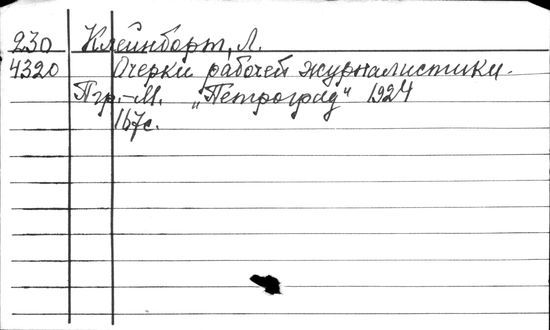 230 Клейнборт, Л.
4320 Очерки рабочей журналистики.
Пгр.-М. „Петроград" 1924
167с.